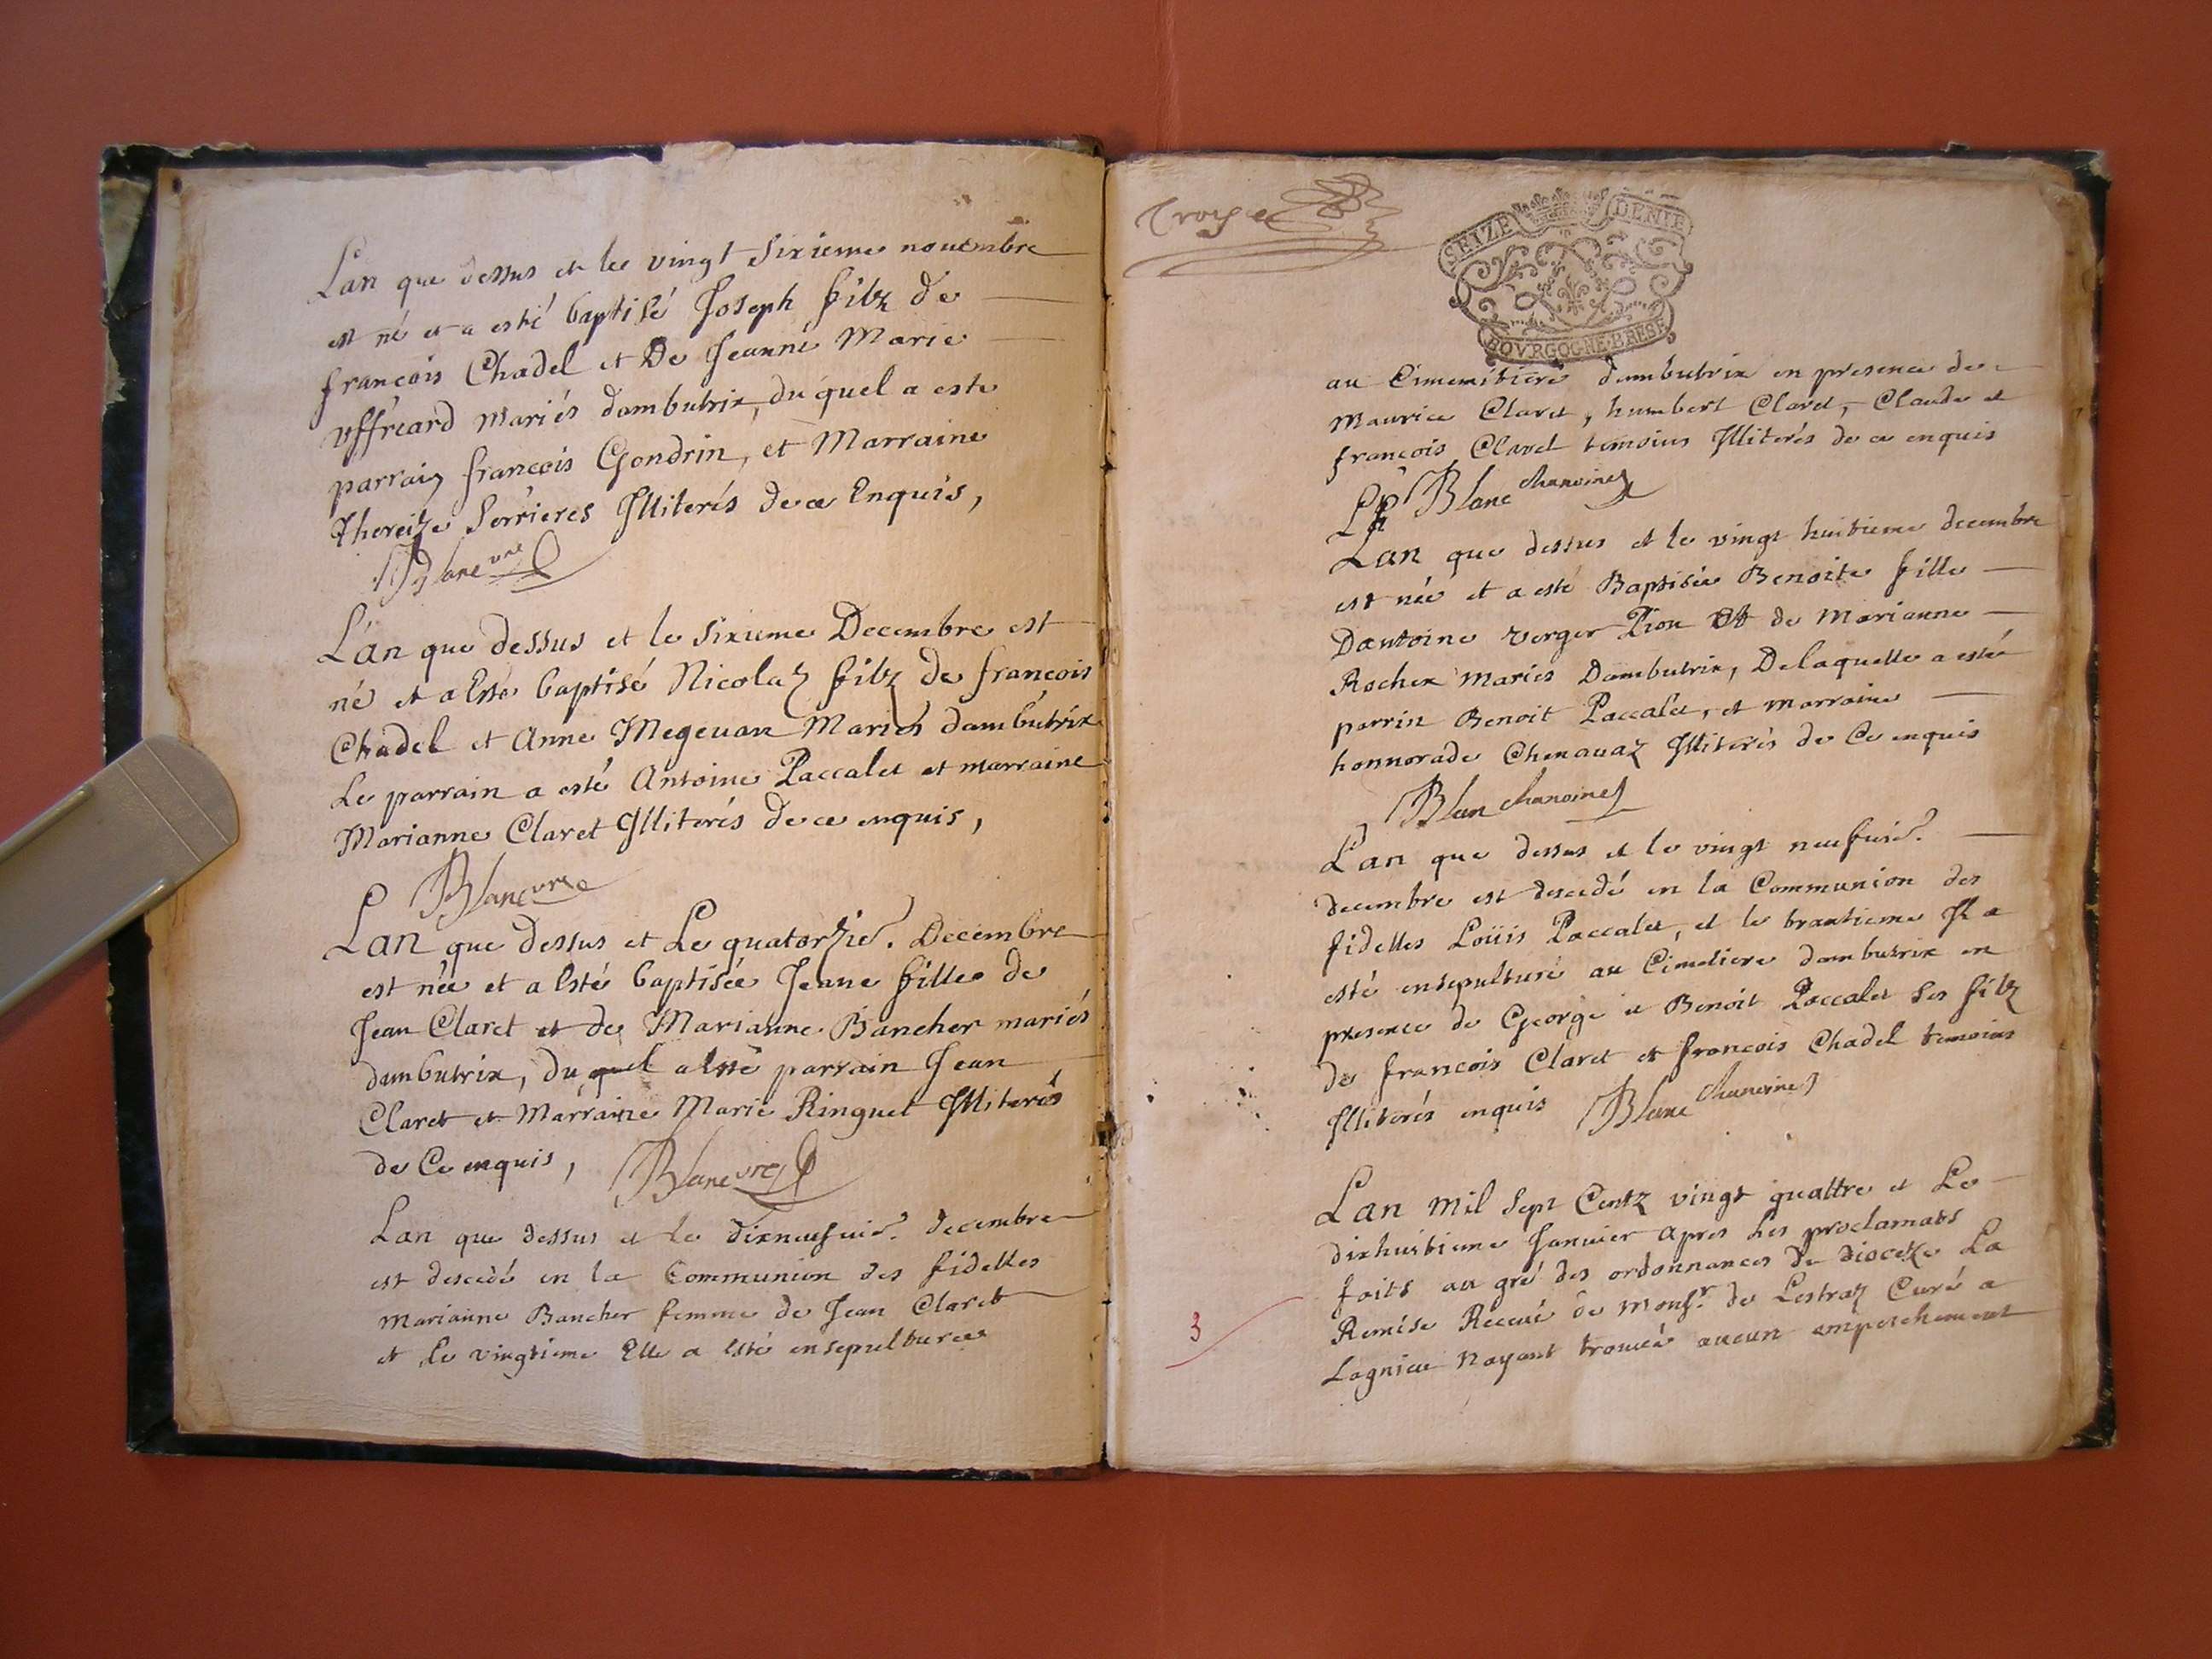 Lan que dessus et le vingt sixieme nouembre
est né et a esté baptisé Joseph filz de
francois Chadel et De Jeanne Marie
uffreard Mariés dambutrix, du quel a este
parrain francois Gondrin, et Marraine
Thereize Serrieres Jlliterés de ce Enquis,
Blanc vre
L'an que dessus et le sixieme Decembre est
né et a Esté baptisé Nicolaz filz de francois
Chadel et Anne Megeuan Mariés dambutrix
Le parrain a esté Antoine Paccalet et marraine
Marianne Claret Jlliterés de ce enquis,
Blanc vre
Lan que dessus et Le quatorzie. Decembre
est née et a Esté baptisée Jenne fille de
Jean Claret et de Marianne Bancher mariés
dambutrix, du quel a Esté parrain Jean
Claret et Marraine Marie Ringuet Jlliterés
de Ce enquis, Blanc vre
Lan que dessus et le dixneufuie. decembre
est descedé en la Communion des fidelles
Marianne Bancher femme de Jean Claret
et le vingtieme Elle a Esté ensepulturee
Troise
SEIZE DENIE
BOVRGOGNE.BRESE
au Cimemitiere dambutrix en presence de
Maurice Claret, humbert Claret, Claude et
francois Claret temoins Jlliterés de ce enquis
Blanc chanoine
Lan que dessus et le vingt huitieme decembre
est née et a esté Baptisée Benoite fille
Dantoine verger Pion et de Marianne
Rochex Mariés Dambutrix, De laquelle a esté
parrin Benoit Paccalet, et marraine
honnorade Chenauaz Jlliterés de Ce enquis
Blan chanoine
L'an que dessus et le vingt neufuie.
decembre est descedé en la Communion des
fidelles Loüis Paccalet, et le trantieme Il a
esté ensepulturé au Cimetiere dambutrix en
presence de George et Benoit Paccalet ses filz
de francois Claret et francois Chadel temoins
Jlliterés enquis Blanc chanoine
Lan Mil Sept Centz vingt quattre et Le
dixhuitieme Januier apres les proclamats
faits au gré des ordonnances du dioceze La
Remise Receué de Monsr. de Lestraz Curé a
Lagnieu Nayant trouué aucun empeschement
3